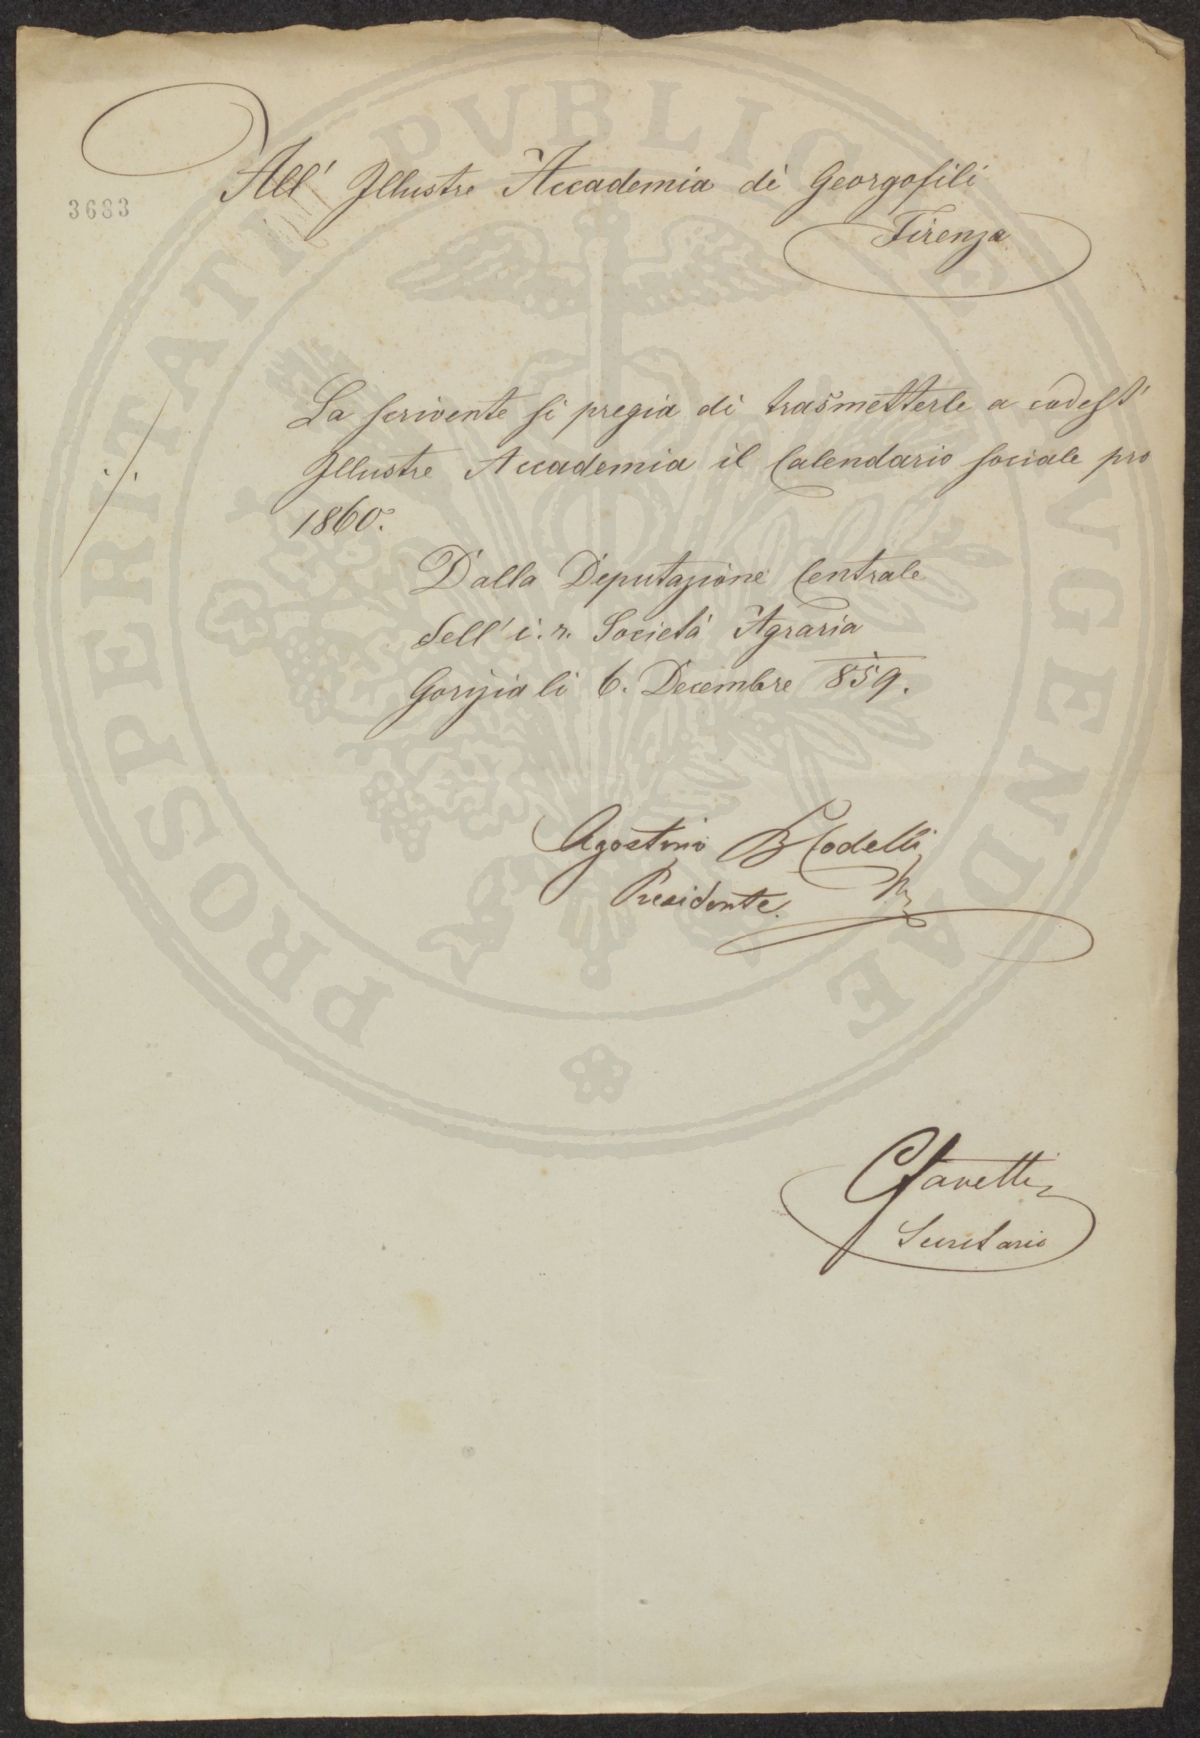 All' Illustre Accademia di Georgofili
3683
Firenza
La scrivente si pregia di trasmetterle a codest'
Illustre Accademia il Calendario sociale pro
1860.
Dalla Deputazione Centrale
dell' i. r. Società Agraria
Gorizia li 6. Decembre 859.
Agostino B Codelli
Presidente.
Secretario
PROSPERITATI PVBLICAE AVGENDAE